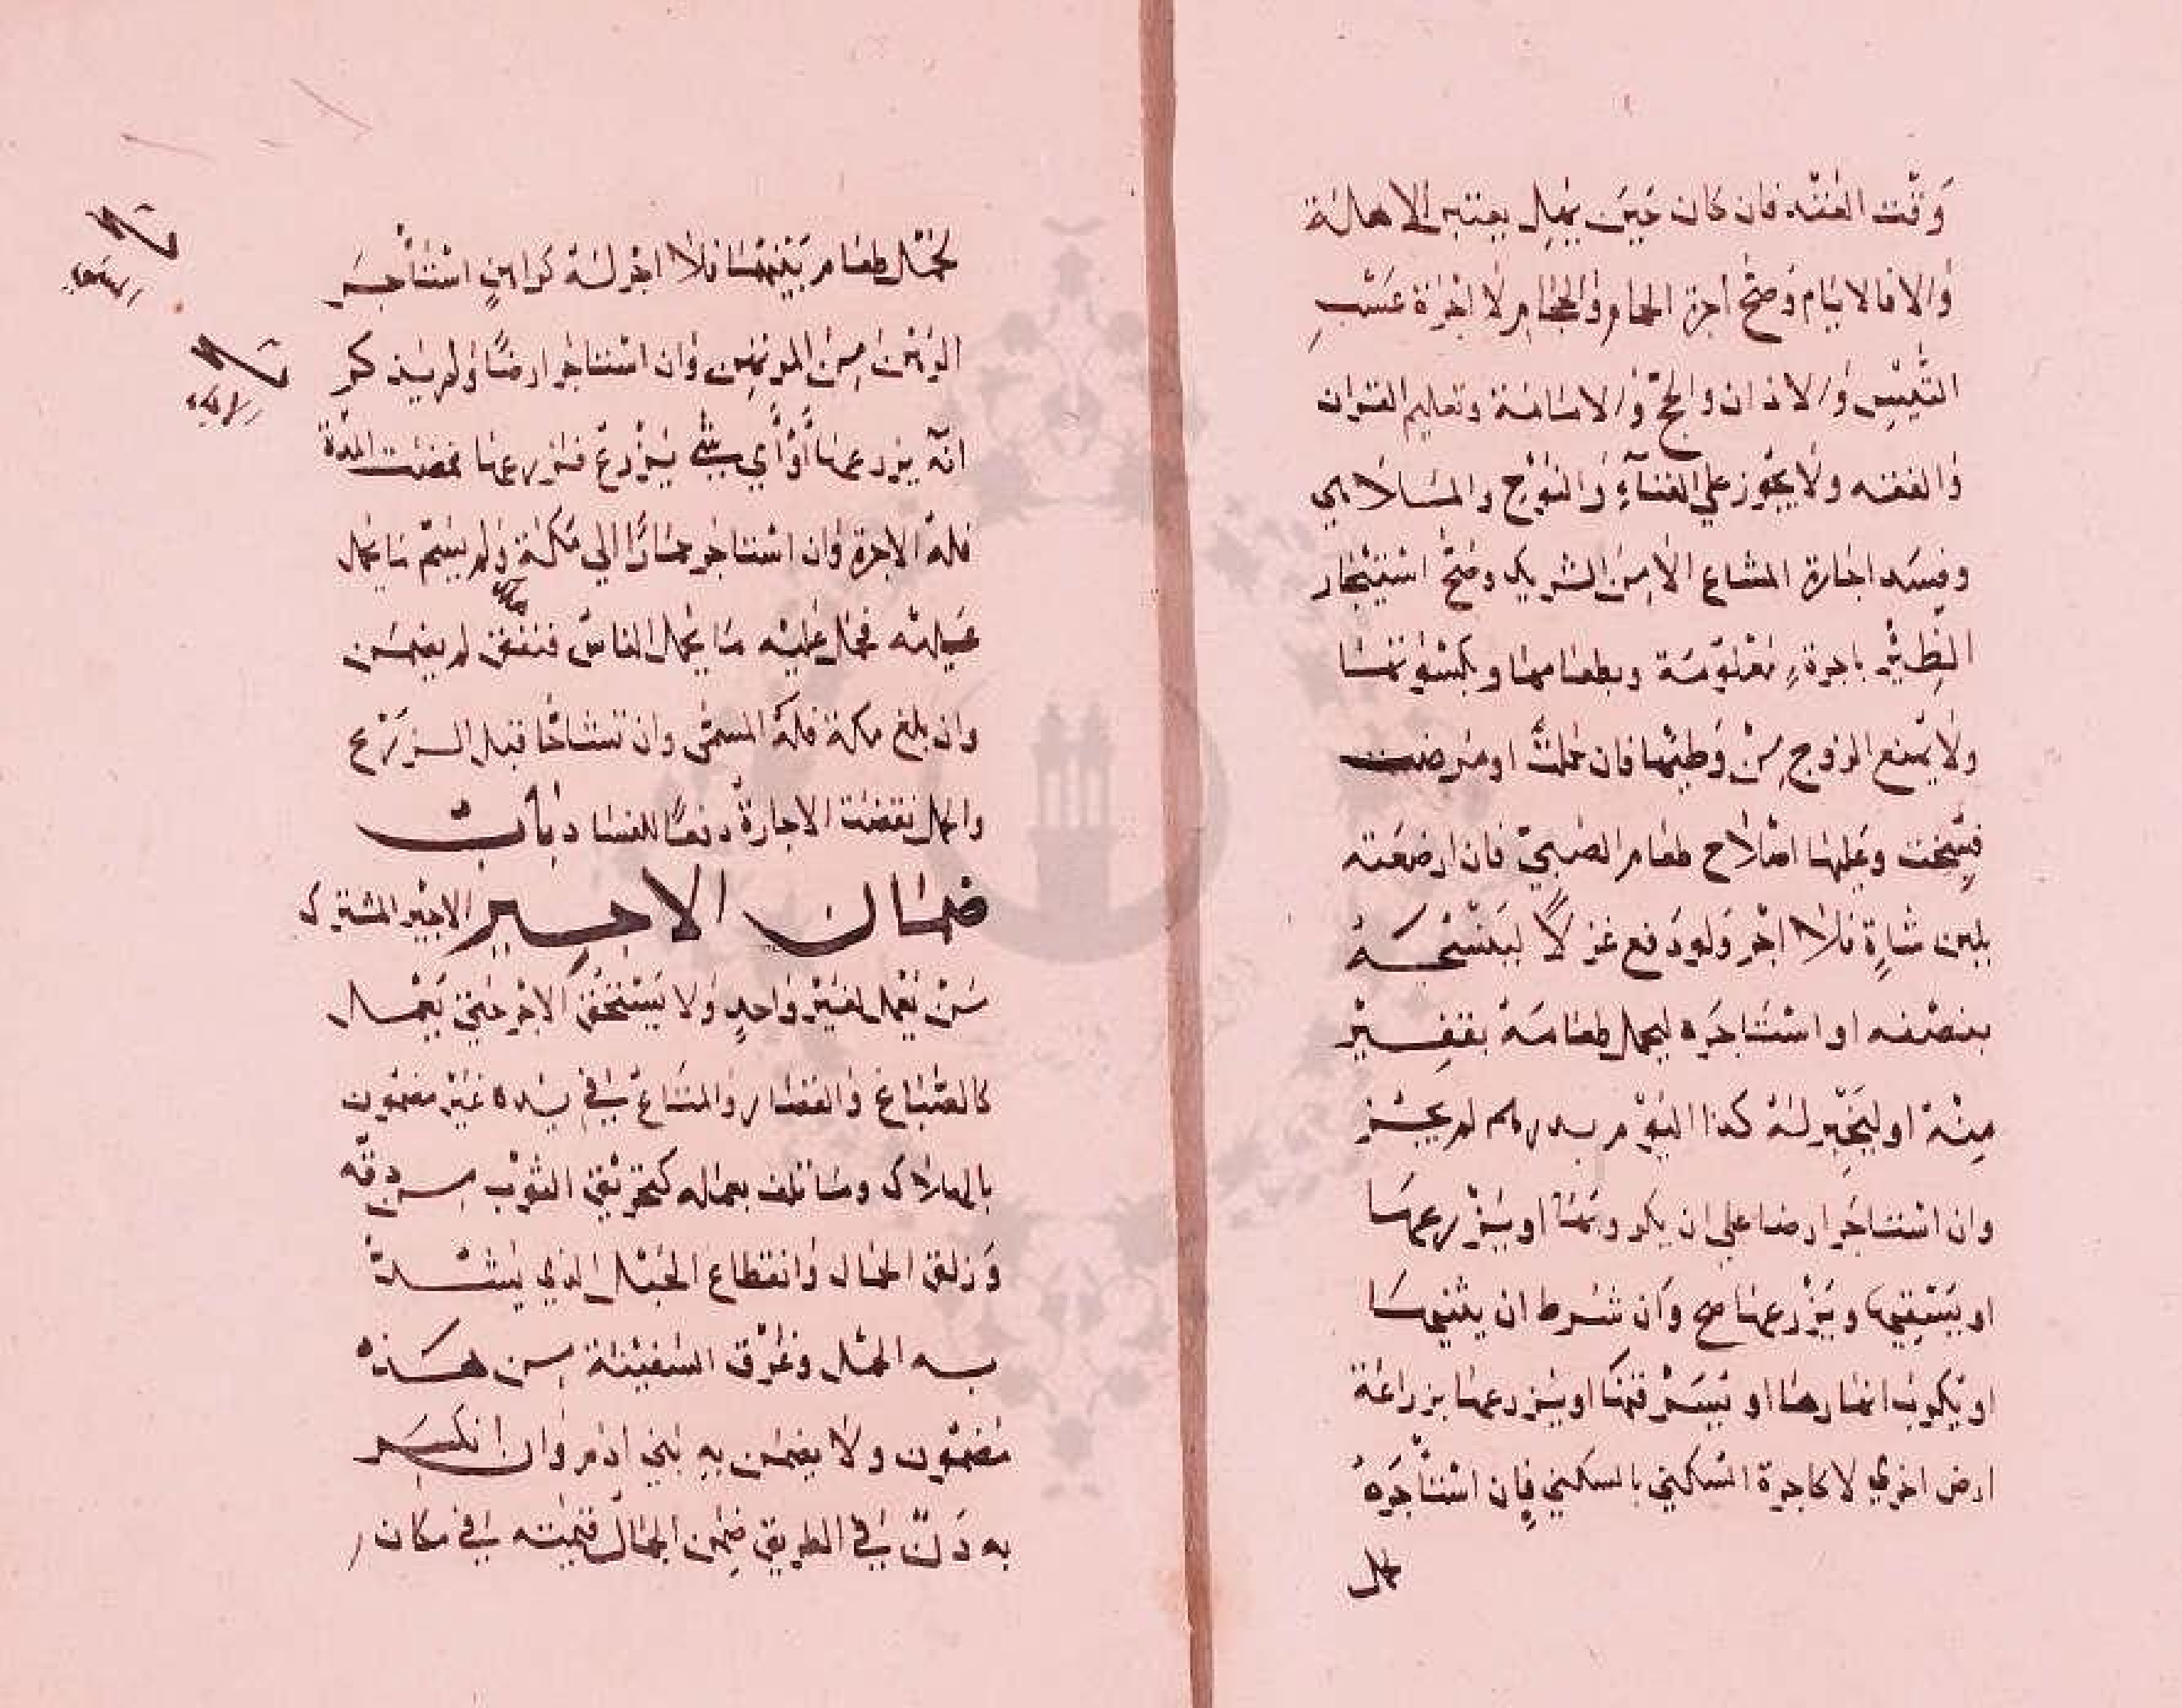 وَقْت العَقْد فان كان حِيْنَ يُهَلّ يعتبر الاهلة
والا فالايام وصح اجرة الحمام والحجام لا اجرة عسب
التيس والاذان والحج والامامة وتعليم القران
والفقه ولا يجوز على الغناء والنوح والملاهي
وفسد اجارة المشاع الا من الشريك وصح استيجار
الظئر باجرة معلومة وبطعامها وبكسوتها
ولا يمنع الزوج من وطيها فان حملت او مرضت
فسخت وعليها اصلاح طعام الصبي فان ارضعته
بلبن شاة فلا اجر ولو دفع غزلا لينسجه
بنصفه او استاجره ليحمل طعامه بقفيز
منه او ليخبز له كذا اليوم بدرهم لم يجز
وان استاجر ارضا على ان يكروبها او يزرعها
او يسقيها ويزرعها صح وان شرط ان يثنيها
او يكري انهارها او يسرقنها او يزرعها بزراعة
ارض اخري لا كاجرة السكني بالسكني فان استاجره
لحمل
لحمل طعام بينهما فلا اجر له كراهن استاجر
الرهن من المرتهن وان استاجر ارضا ولم يذكر
انه يزرعها او اي شي يزرع فزرعها فمضت المدة
فله الاجرة وان استاجر حمارا الي مكة ولم يسم ما يحمل
عليه فحمل عليه ما يحمل الناس فنفق لم يضمن
وان بلغ مكة فله المسمى وان تشاحا قبل الزرع
والحمل نقضت الاجارة دفعا للفساد باب
ضمان الاجير الاجير المشترك
من يعمل لغير واحد ولا يستحق الاجر حتي يعمل
كالصباغ والقصار والمتاع في يده غير مضمون
بالهلاك وما تلف بعمله كتخريق الثوب من دقه
وزلق الحمال وانقطاع الحبل الذي يشد
به الحمل وغرق السفينة من مده
مضمون ولا يضمن به بني ادم وان انكسر
به دن في الطريق ضمن الحمال قيمته في مكان